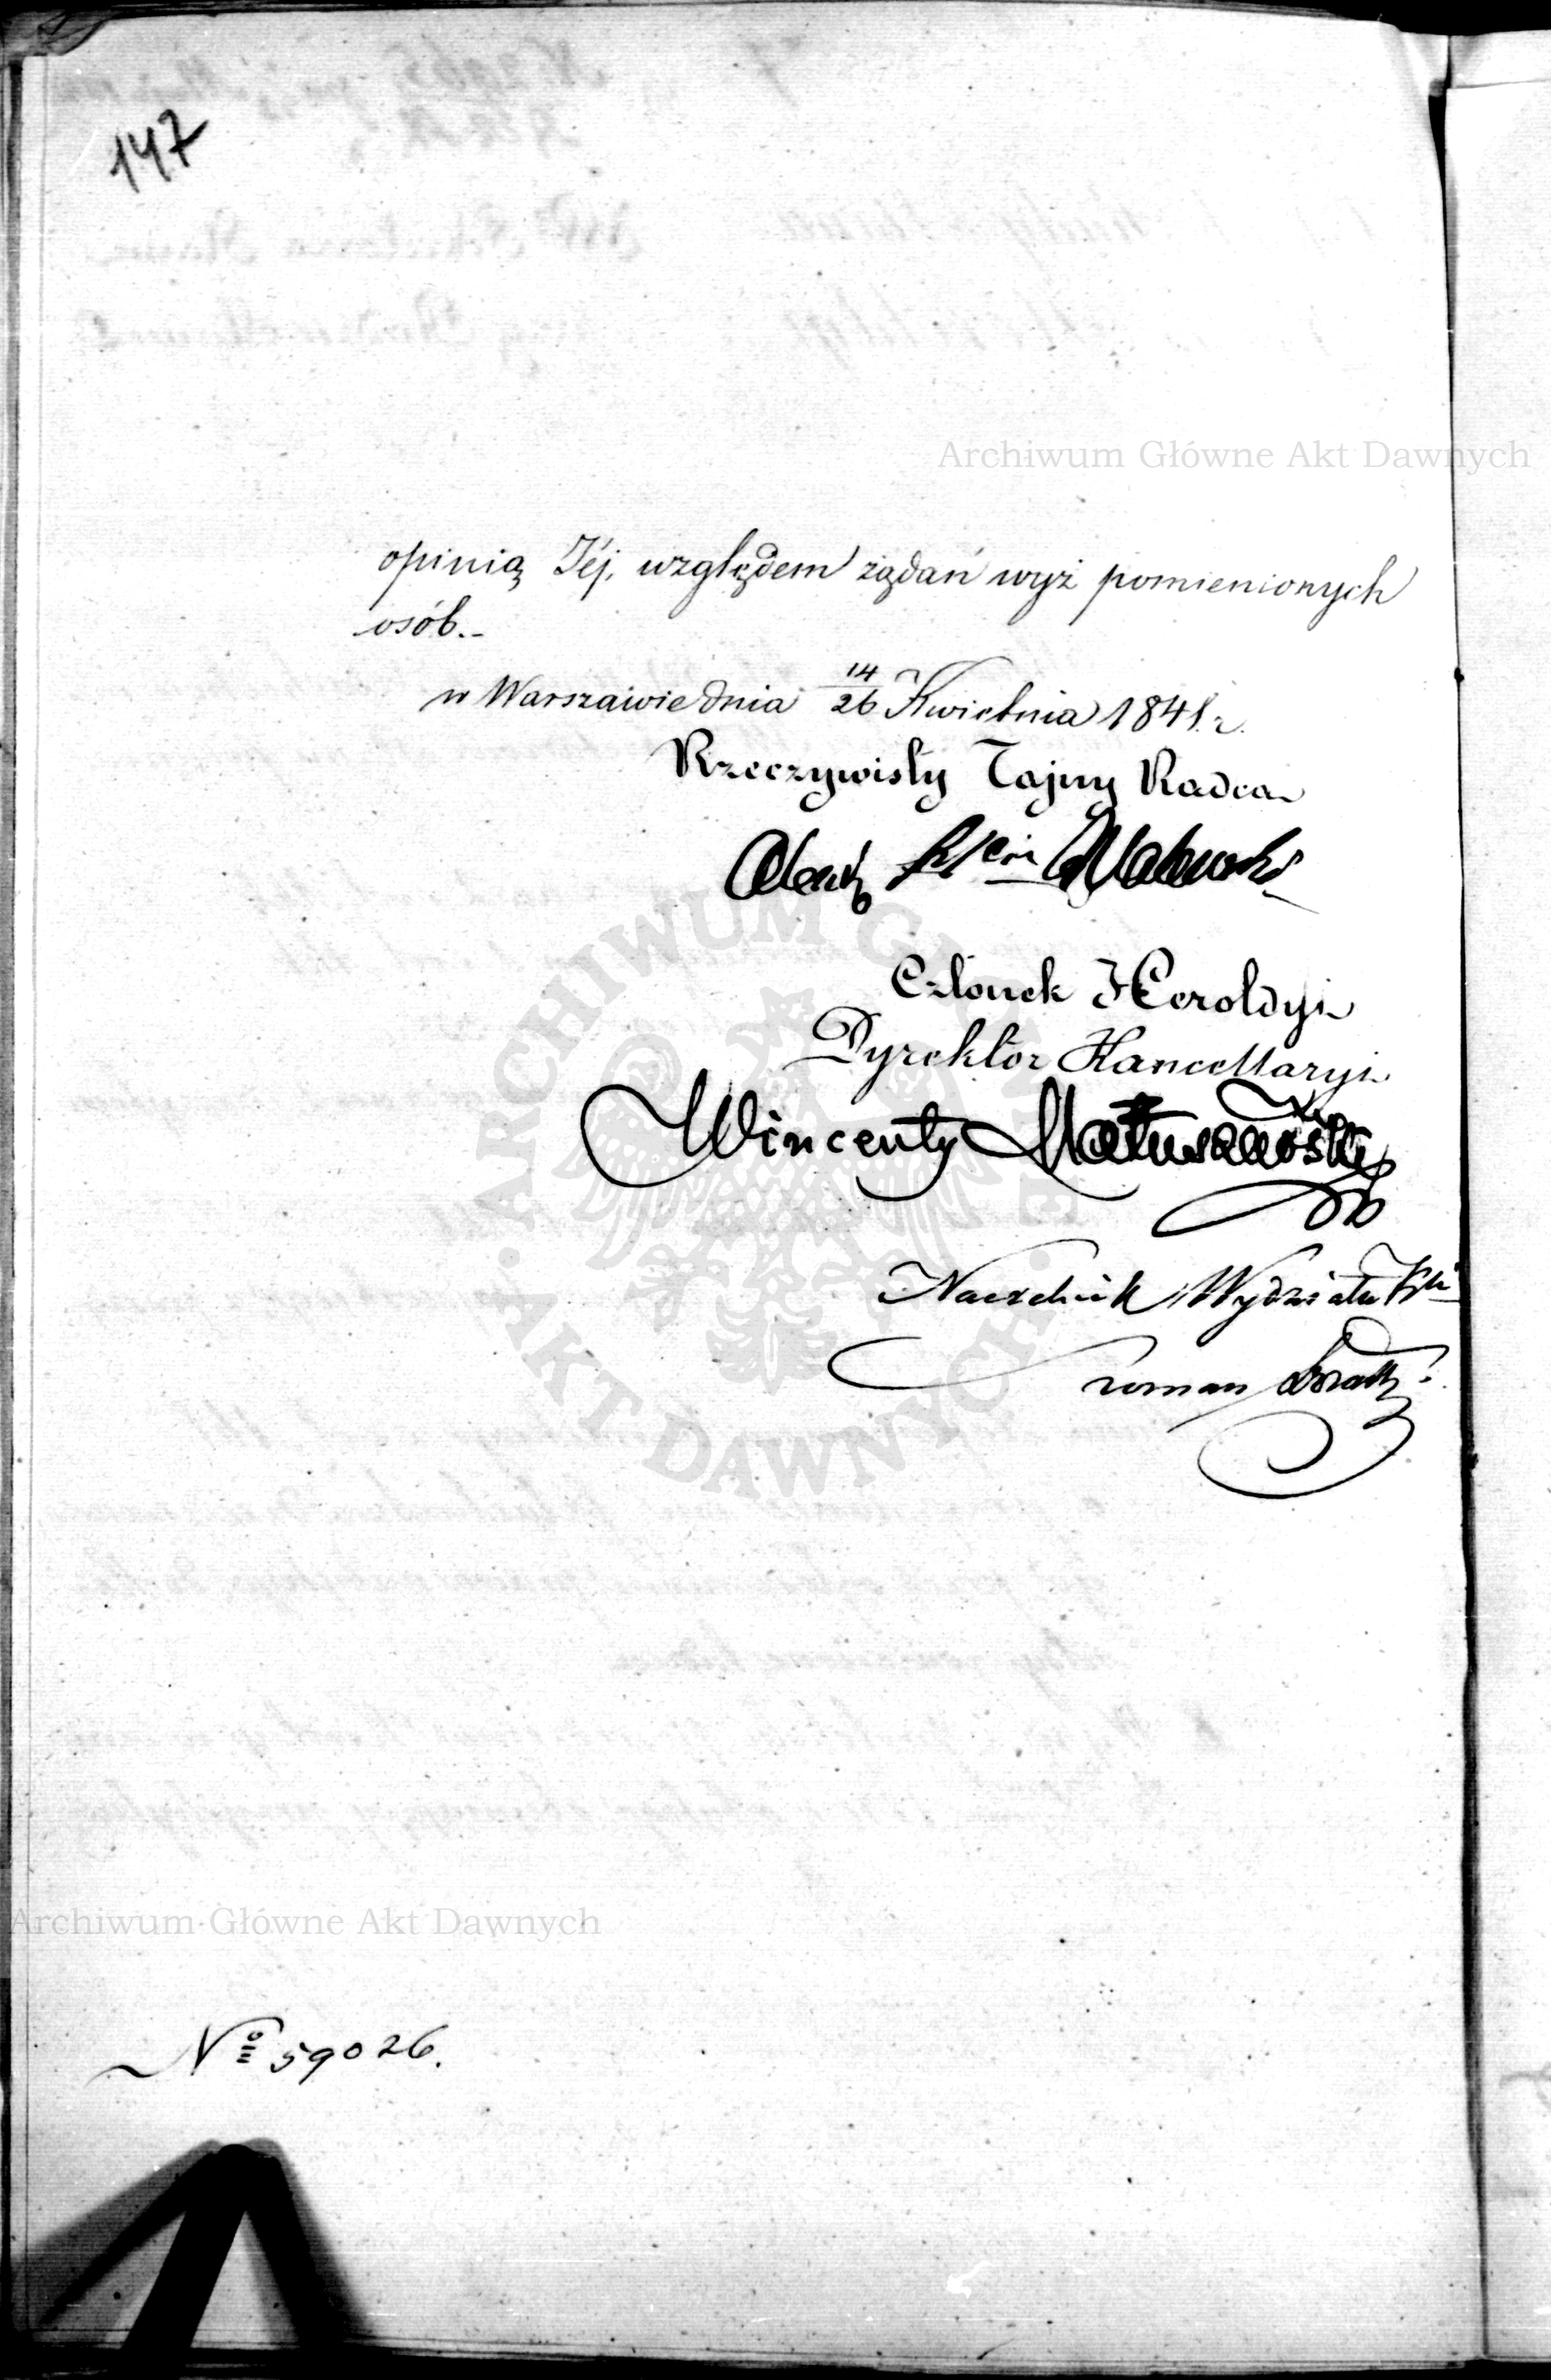 147
Archiwum Główne Akt Dawnych
opinią Jéj, względem żądań wyż pomienionych
osób.-
w Warszawie dnia 14/26 Kwietnia 1841 r.
Rzeczywisty Tajny Radca
Członek Heroldyi
Dyrektor Kancellaryi
Wincenty Matuszewski
ARCHIWUM GŁÓWNE
AKT DAWNYCH
Naczelnik Wydziału
Roman
Archiwum Główne Akt Dawnych
№ 59026.